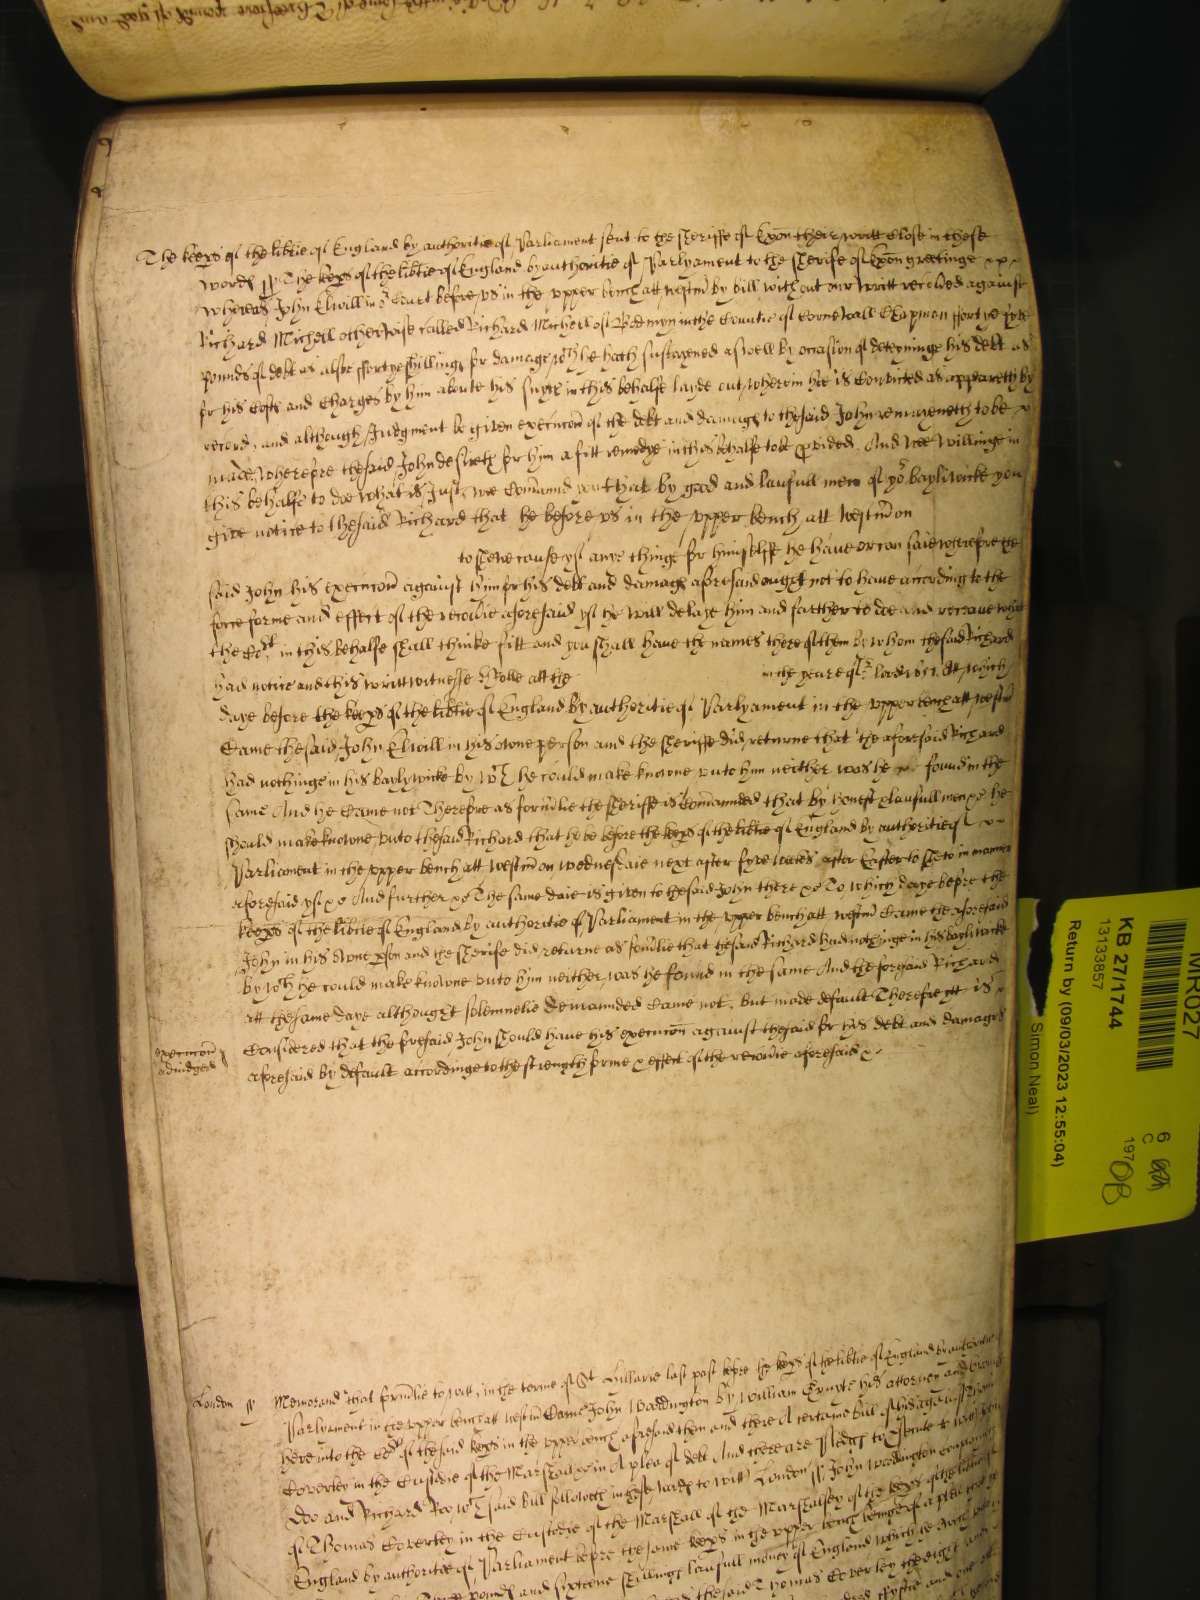 The keeps of the libtie of England by authoritie of Parliament sent to the Sheriffe of Exon their writt close in these
words ss The keeps of the libtie of England by authoritie of Parlyament to the Sherife of Exon greetinge
Whereas John Elwill in or Court before us in the upper bench att Westm by bill without our writt recoved against
Richard Michell otherwise called Richard Michell of Bodmyn in the Countie of Cornewall Chapman fortye
pounds of debt as alsoe fortye shillings for damage wch he hath susteyned aswell by occasion of deteyninge his debt as
for his Costs and Charges by him aboute his suyte in this behalfe layde out, wherein hee is Convicted as appeareth by
record, and although Judgment be given execucon of the debt and damags to the said John remayneth to be
made, Wherefore the said John desireth for him a fitt remedye in this behalfe to be pvided. And wee willinge in
this behalfe to doe what is Just, wee Comannd you that by good and laufull men of yor bayliwicke you
give notice to the said Richard that he before us in the upper bench att Westm on
to shewe cause yf anye thinge for himselffe he have or can saie wherefore the
said John his execucon against him for his debt and damags aforesaid ought not to have according to the
force forme and effect of the recovie aforesaid yf he will delaye him and further to doe and receave what
the Cort in this behalfe shall thinke fitt and you shall have the names there of them by whom the said Richard
had notice and this writt witnesse H Rolle att the
in the yeare of or lord 1651. Att which
daye before the keeps of the libtie of England by authoritie of Parlyament in the upper bench att Westm
Came the said John Elwill in his owne person and the Sheriffe did returne that the aforesaid Richard
had nothinge in his baylywicke by wch he could make knowne unto him neither was he found in the
same And he Came not Therefore as formlie the Sheriffe is Comannded that by honest & laufull men &c he
should make knowne unto the said Richard that he be before the keeps of the libtie of England by authoritie of
Parliament in the upper bench att Westm on Wednesdaie next after fyve weeks after Easter to shew in manner
aforesaid yf &c And further &c The same daie is given to the said John there &c To which daye before the
keeps of the libtie of England by authoritie of Parliament in the upper bench att Westm Came the aforesaid
John in his owne pson and the Sherife did returne as formlie that the said Richard had nothinge in his bayliwicke
by wch he could make knowne unto him neither was he found in the same And the foresaid Richard
att the same daye althought solemnelie demaunded Came not, but made default Therefore itt is
Considered that the foresaid John should have his execucon against the said for his debt and damages
aforesaid by default accordinge to the strength forme & effect of the recovie aforesaid &c
execucon
adiudged
London ss Memorand that formlie to witt, in the terme of St Hillarie last past before the keeps of the libtie of England by authoritie
Parlyament in the upper bench att Westm Came John Waddington by William his attorney and
here into the Cort of the said keeps in the upper bench aforesaid then and there A certaine bill of his against
Coverley in the Custodie of the Marshall &c in A plea of debt And there are pledgs to
Doo and Richard Roo, wch said bill followeth in these words to witt London ss John Waddington
of Thomas Coverley in the Custodie of the Marshall of the Marshalsey of the keeps of the libtie
England by authoritie of Parliament before the same keeps in the upper bench beinge of a plea that
pounds and sixteene shillings lawfull money of England which he
the said Thomas Coverley the eight
fyftie and one
KB 27/1744
13133857
Return by (09/03/2023 12:55:04)
Simon Neal)
MR027
6
C
197